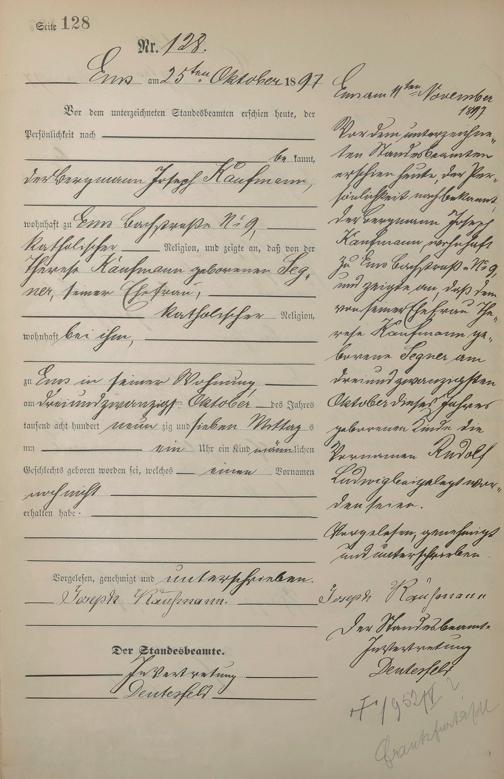 Seite 128
Nr. 128.
Ems am 25ten Oktober 1897
Vor dem unterzeichneten Standesbeamten erschien heute, der
Persönlichkeit nach
be kannt,
der Bergmann Joseph Kaufmann,
wohnhaft zu Ems Bachstraße No 9,
katholischer Religion, und zeigte an, daß von der
Therese Kaufmann geborenen Seg,
ner, seiner Ehefrau,
katholischer Religion,
wohnhaft bei ihm,
zu Ems in seiner Wohnung
am dreiundzwanzigs Oktober des Jahres
tausend acht hundert neun zig und sieben Mittag s
um ein Uhr ein Kind männlichen
Geschlechts geboren worden sei, welches einen Vornamen
noch nicht
erhalten habe.
Vorgelesen, genehmigt und unterschrieben.
Joseph Kaufmann.
Der Standesbeamte.
In Vertretung
Deutesfeld
Ems am 11ten November
1897
Vor dem unterzeichne-
ten Standesbeamten
erschien heute, der Per-
sönlichkeit nach bekannt
der Bergmann Joseph
Kaufmann, wohnhaft
zu Ems Bachstraß. No 9,
und zeigte an, daß dem
von seiner Ehefrau The-
rese Kaufmann ge-
borene Segner am
dreiundzwanzigsten
Oktober dieses Jahres
geborenen Kinde die
Vornamen Rudolf
Ludwig beigelegt wor-
den seien.
Vorgelesen, genehmigt
und unterschrieben
Joseph Kaufmann
Der Standesbeamte
In Vertretung
Deutesfeld
Frankfurt a/M